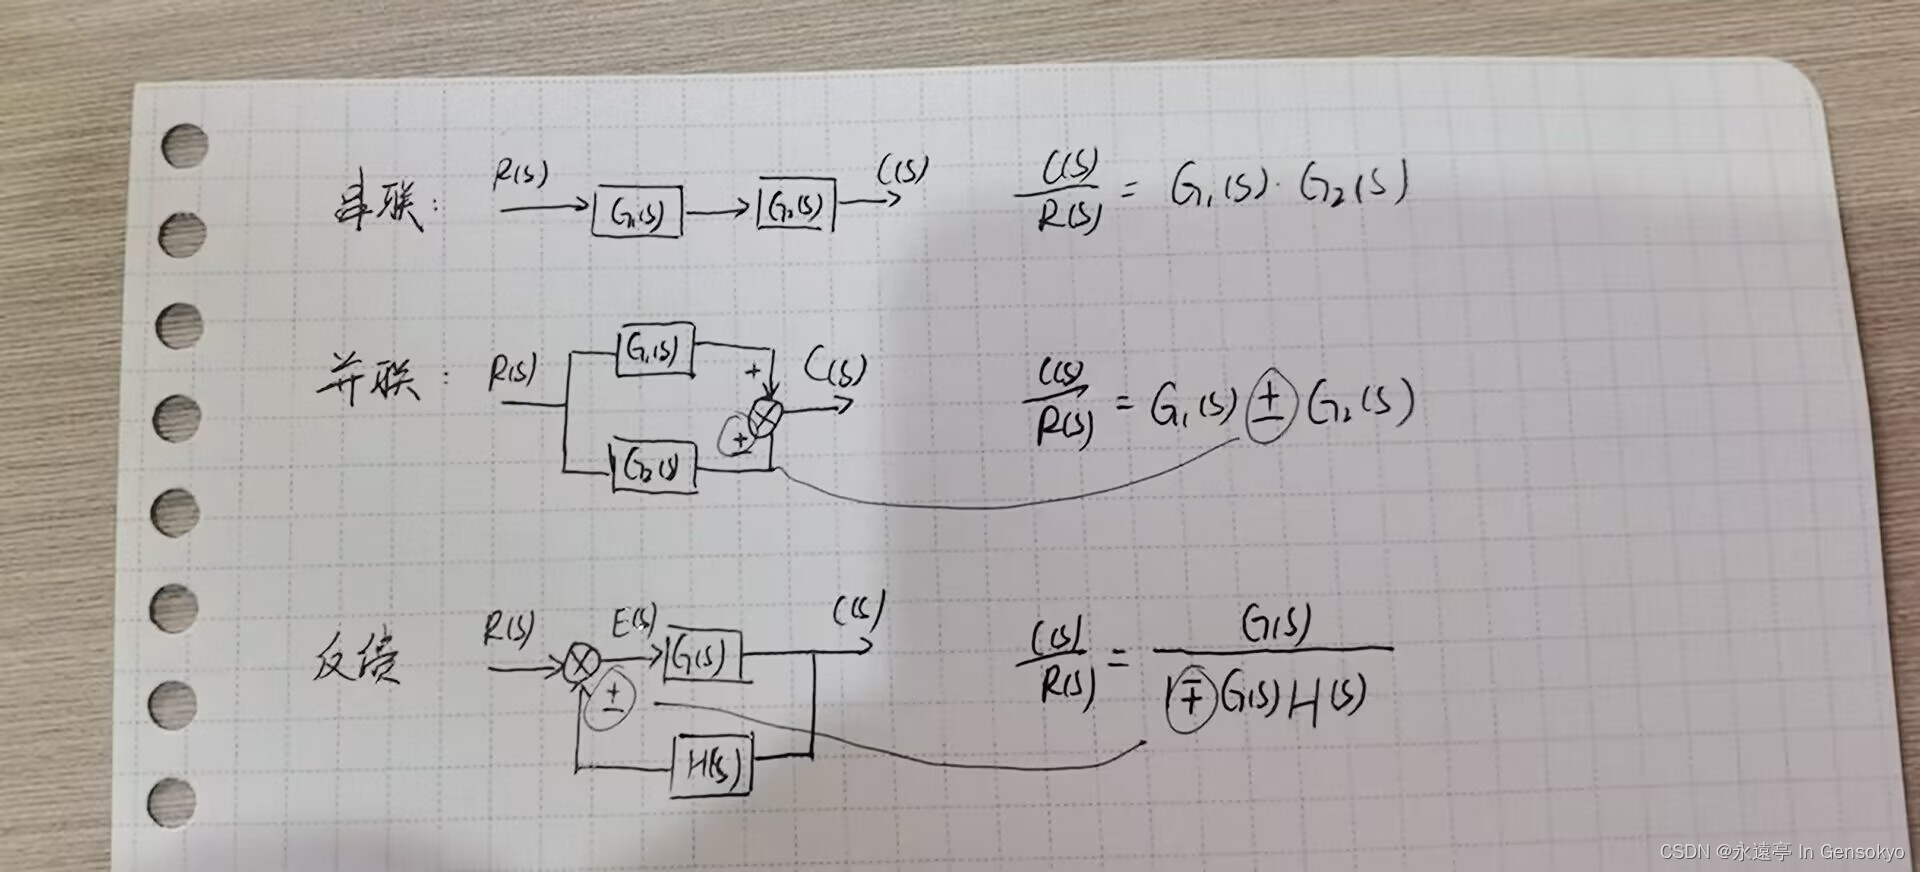 串联: R(s) G₁(s) G₂(s) C(s) C(s)/R(s) = G₁(s)·G₂(s)
并联: R(s) G₁(s) G₂(s) + ± C(s) C(s)/R(s) = G₁(s) ± G₂(s)
反馈 R(s) E(s) G(s) C(s) ± H(s) C(s)/R(s) = G(s)/(1 ∓ G(s)H(s))
CSDN @永遠亭 In Gensokyo